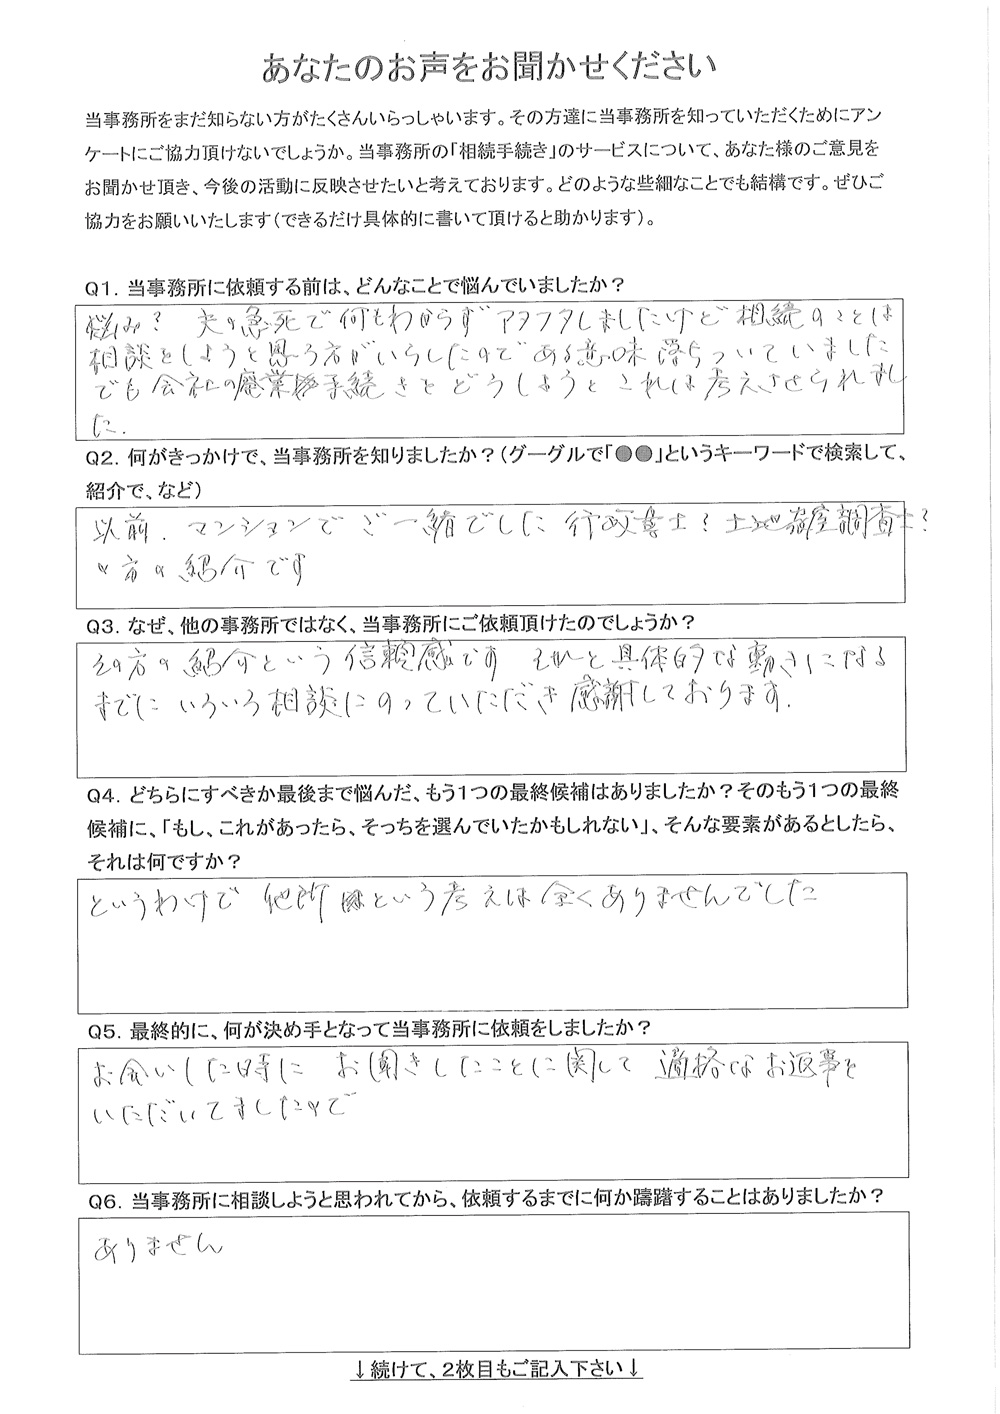 あなたのお声をお聞かせください
当事務所をまだ知らない方がたくさんいらっしゃいます。その方達に当事務所を知っていただくためにアン
ケートにご協力頂けないでしょうか。当事務所の「相続手続き」のサービスについて、あなた様のご意見を
お聞かせ頂き、今後の活動に反映させたいと考えております。どのような些細なことでも結構です。ぜひご
協力をお願いいたします(できるだけ具体的に書いて頂けると助かります)。
Q1. 当事務所に依頼する前は、どんなことで悩んでいましたか?
悩み? 夫の急死で何もわからず アタフタしましたけど 相続のことは
相談をしようと思う方がいらしたので ある意味 落ちついていました
でも 会社の廃業手続きを どうしようと これは 考えさせられまし
た.
Q2. 何がきっかけで、当事務所を知りましたか?(グーグルで「●●」というキーワードで検索して、
紹介で、など)
以前. マンションで ご一緒でした 行政書士? 土地家屋調査士?
の方の紹介です
Q3. なぜ、他の事務所ではなく、当事務所にご依頼頂けたのでしょうか?
その方の紹介という信頼感です それと具体的な動きになる
までに いろいろ相談にのっていただき 感謝しております.
Q4. どちらにすべきか最後まで悩んだ、もう1つの最終候補はありましたか?そのもう1つの最終
候補に、「もし、これがあったら、そっちを選んでいたかもしれない」、そんな要素があるとしたら、
それは何ですか?
というわけで 他所という考えは全くありませんでした
Q5. 最終的に、何が決め手となって当事務所に依頼をしましたか?
お会いした時に お聞きしたことに関して 適格なお返事を
いただいてましたので
Q6. 当事務所に相談しようと思われてから、依頼するまでに何か躊躇することはありましたか?
ありません
↓続けて、2枚目もご記入下さい↓